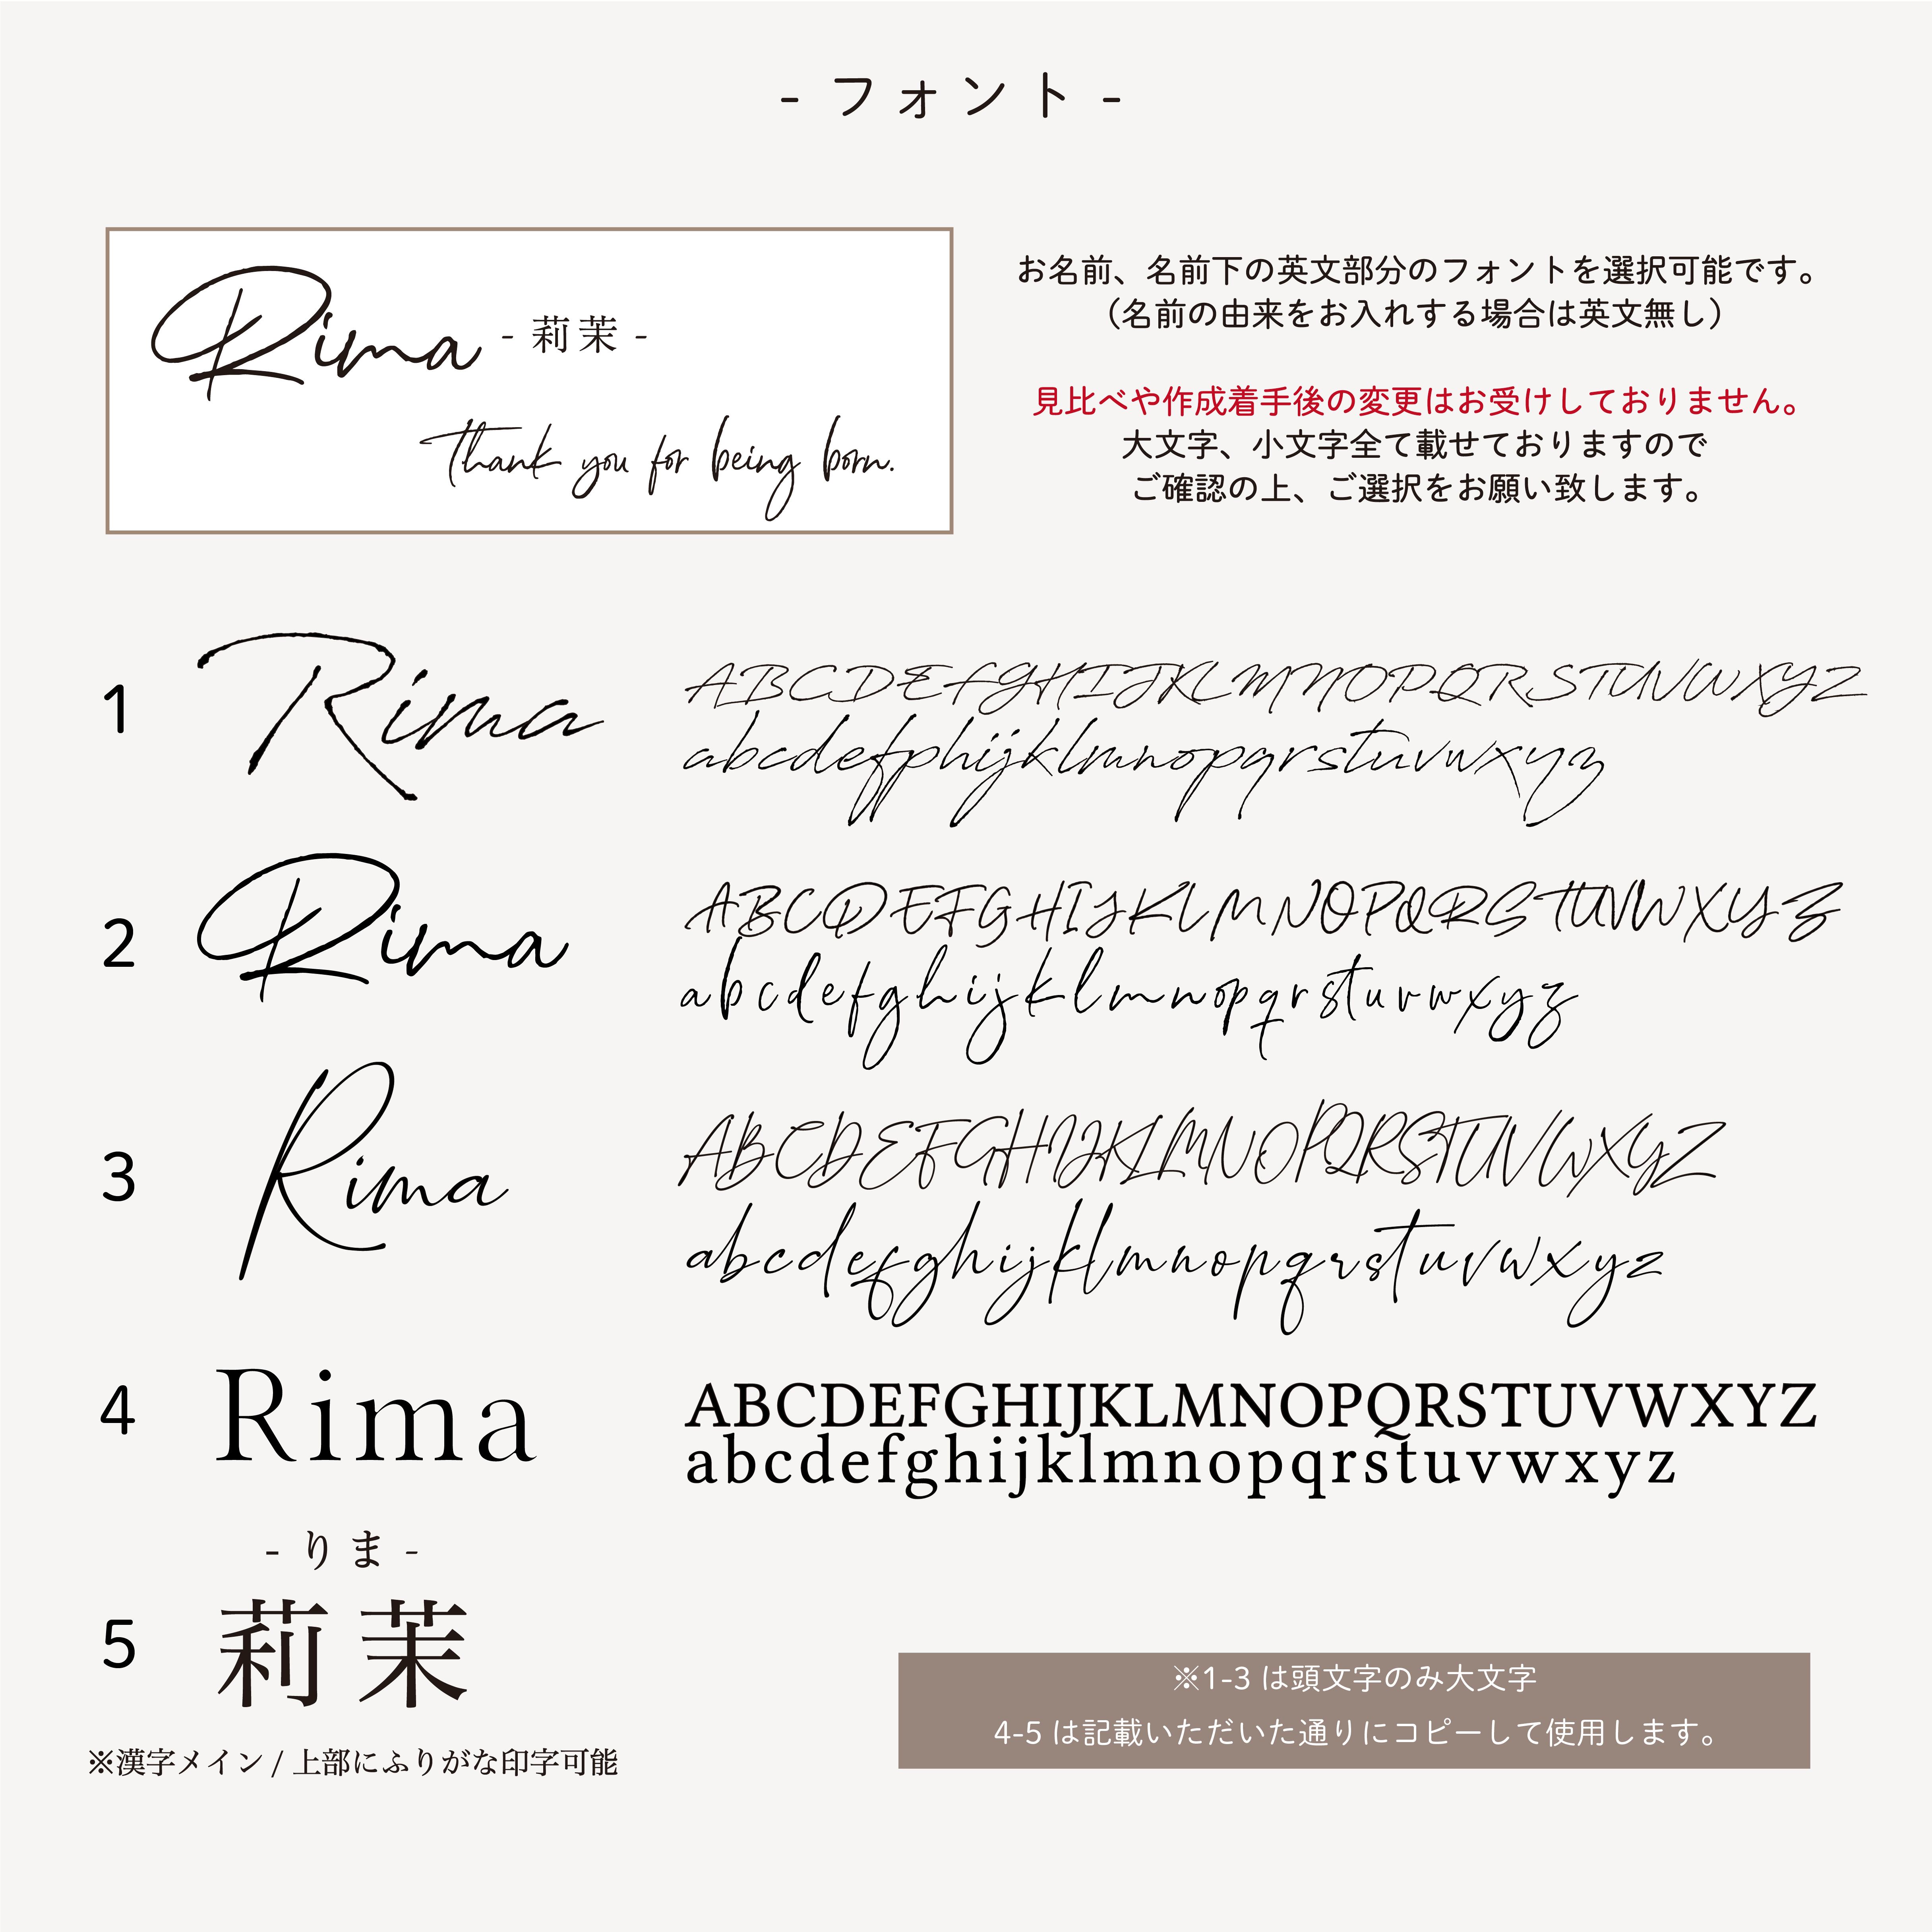 - フォント -
Rima - 莉茉 -
Thank you for being born.
お名前、名前下の英文部分のフォントを選択可能です。
（名前の由来をお入れする場合は英文無し）
見比べや作成着手後の変更はお受けしておりません。
大文字、小文字全て載せておりますので
ご確認の上、ご選択をお願い致します。
1 Rima
ABCDEFGHIJKLMNOPQRSTUVWXYZ
abcdefphijklmnopqrstuvwxyz
2 Rima
ABCDEFGHIJKLMNOPQRSTUVWXYZ
abcdefghijklmnopqrstuvwxyz
3 Rima
ABCDEFGHIJKLMNOPQRSTUVWXYZ
abcdefghijklmnopqrstuvwxyz
4 Rima
ABCDEFGHIJKLMNOPQRSTUVWXYZ
abcdefghijklmnopqrstuvwxyz
- りま -
5 莉茉
※漢字メイン / 上部にふりがな印字可能
※1-3 は頭文字のみ大文字
4-5 は記載いただいた通りにコピーして使用します。